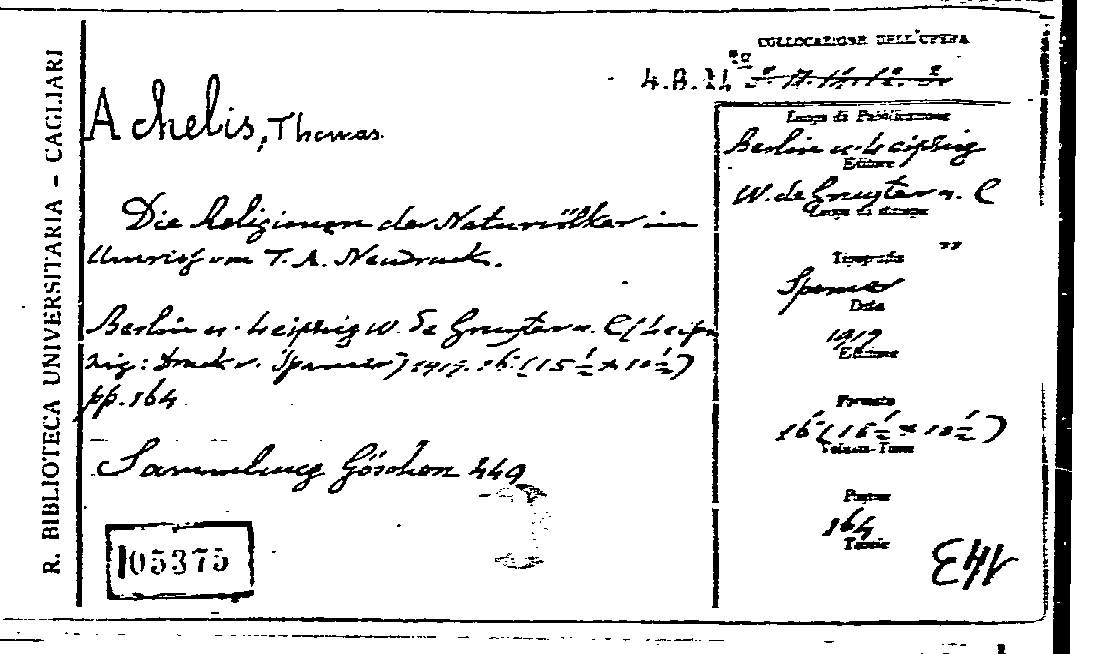 R. BIBLIOTECA UNIVERSITARIA - CAGLIARI
COLLOCAZIONE DELL'OPERA
4.B.
Achelis, Thomas
Die Religionen der Naturvölker im
Umriss von T. A. Neudruck.
Berlin u. Leipzig W. de Gruyter u. C (Leip
zig: Druck v. Spamer) 1919. 16. (15 1/2 x 10 1/2)
pp. 164
Sammlung Göschen 449
105375
Luogo di Pubblicazione
Berlin u. Leipzig
Editore
W. de Gruyter u. C
Luogo di stampa
"
Tipografia
Spamer
Data
1919
Edizione
Formato
16 (15 1/2 x 10 1/2)
Volumi-Tomi
Pagine
164
Tavole